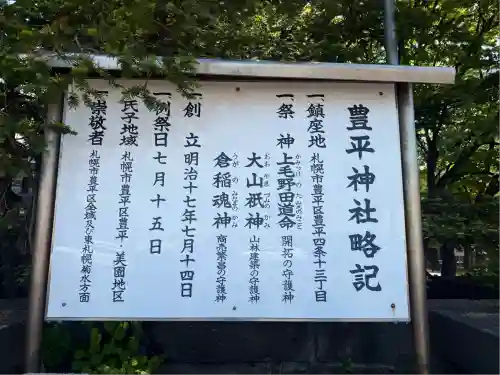 豊平神社略記
一鎮座地 札幌市豊平区豊平四条十三丁目
一祭神 上毛野田道命 開拓の守護神
かみつけの たなのみこと
大山祇神 山林建築の守護神
おお やま づみの かみ
倉稲魂神 商売繁昌の守護神
うが の みたまの かみ
一創立 明治十七年七月十四日
一例祭日 七月十五日
氏子地域 札幌市豊平区豊平・美園地区
一崇敬者 札幌市豊平区全域及び東札幌菊水方面